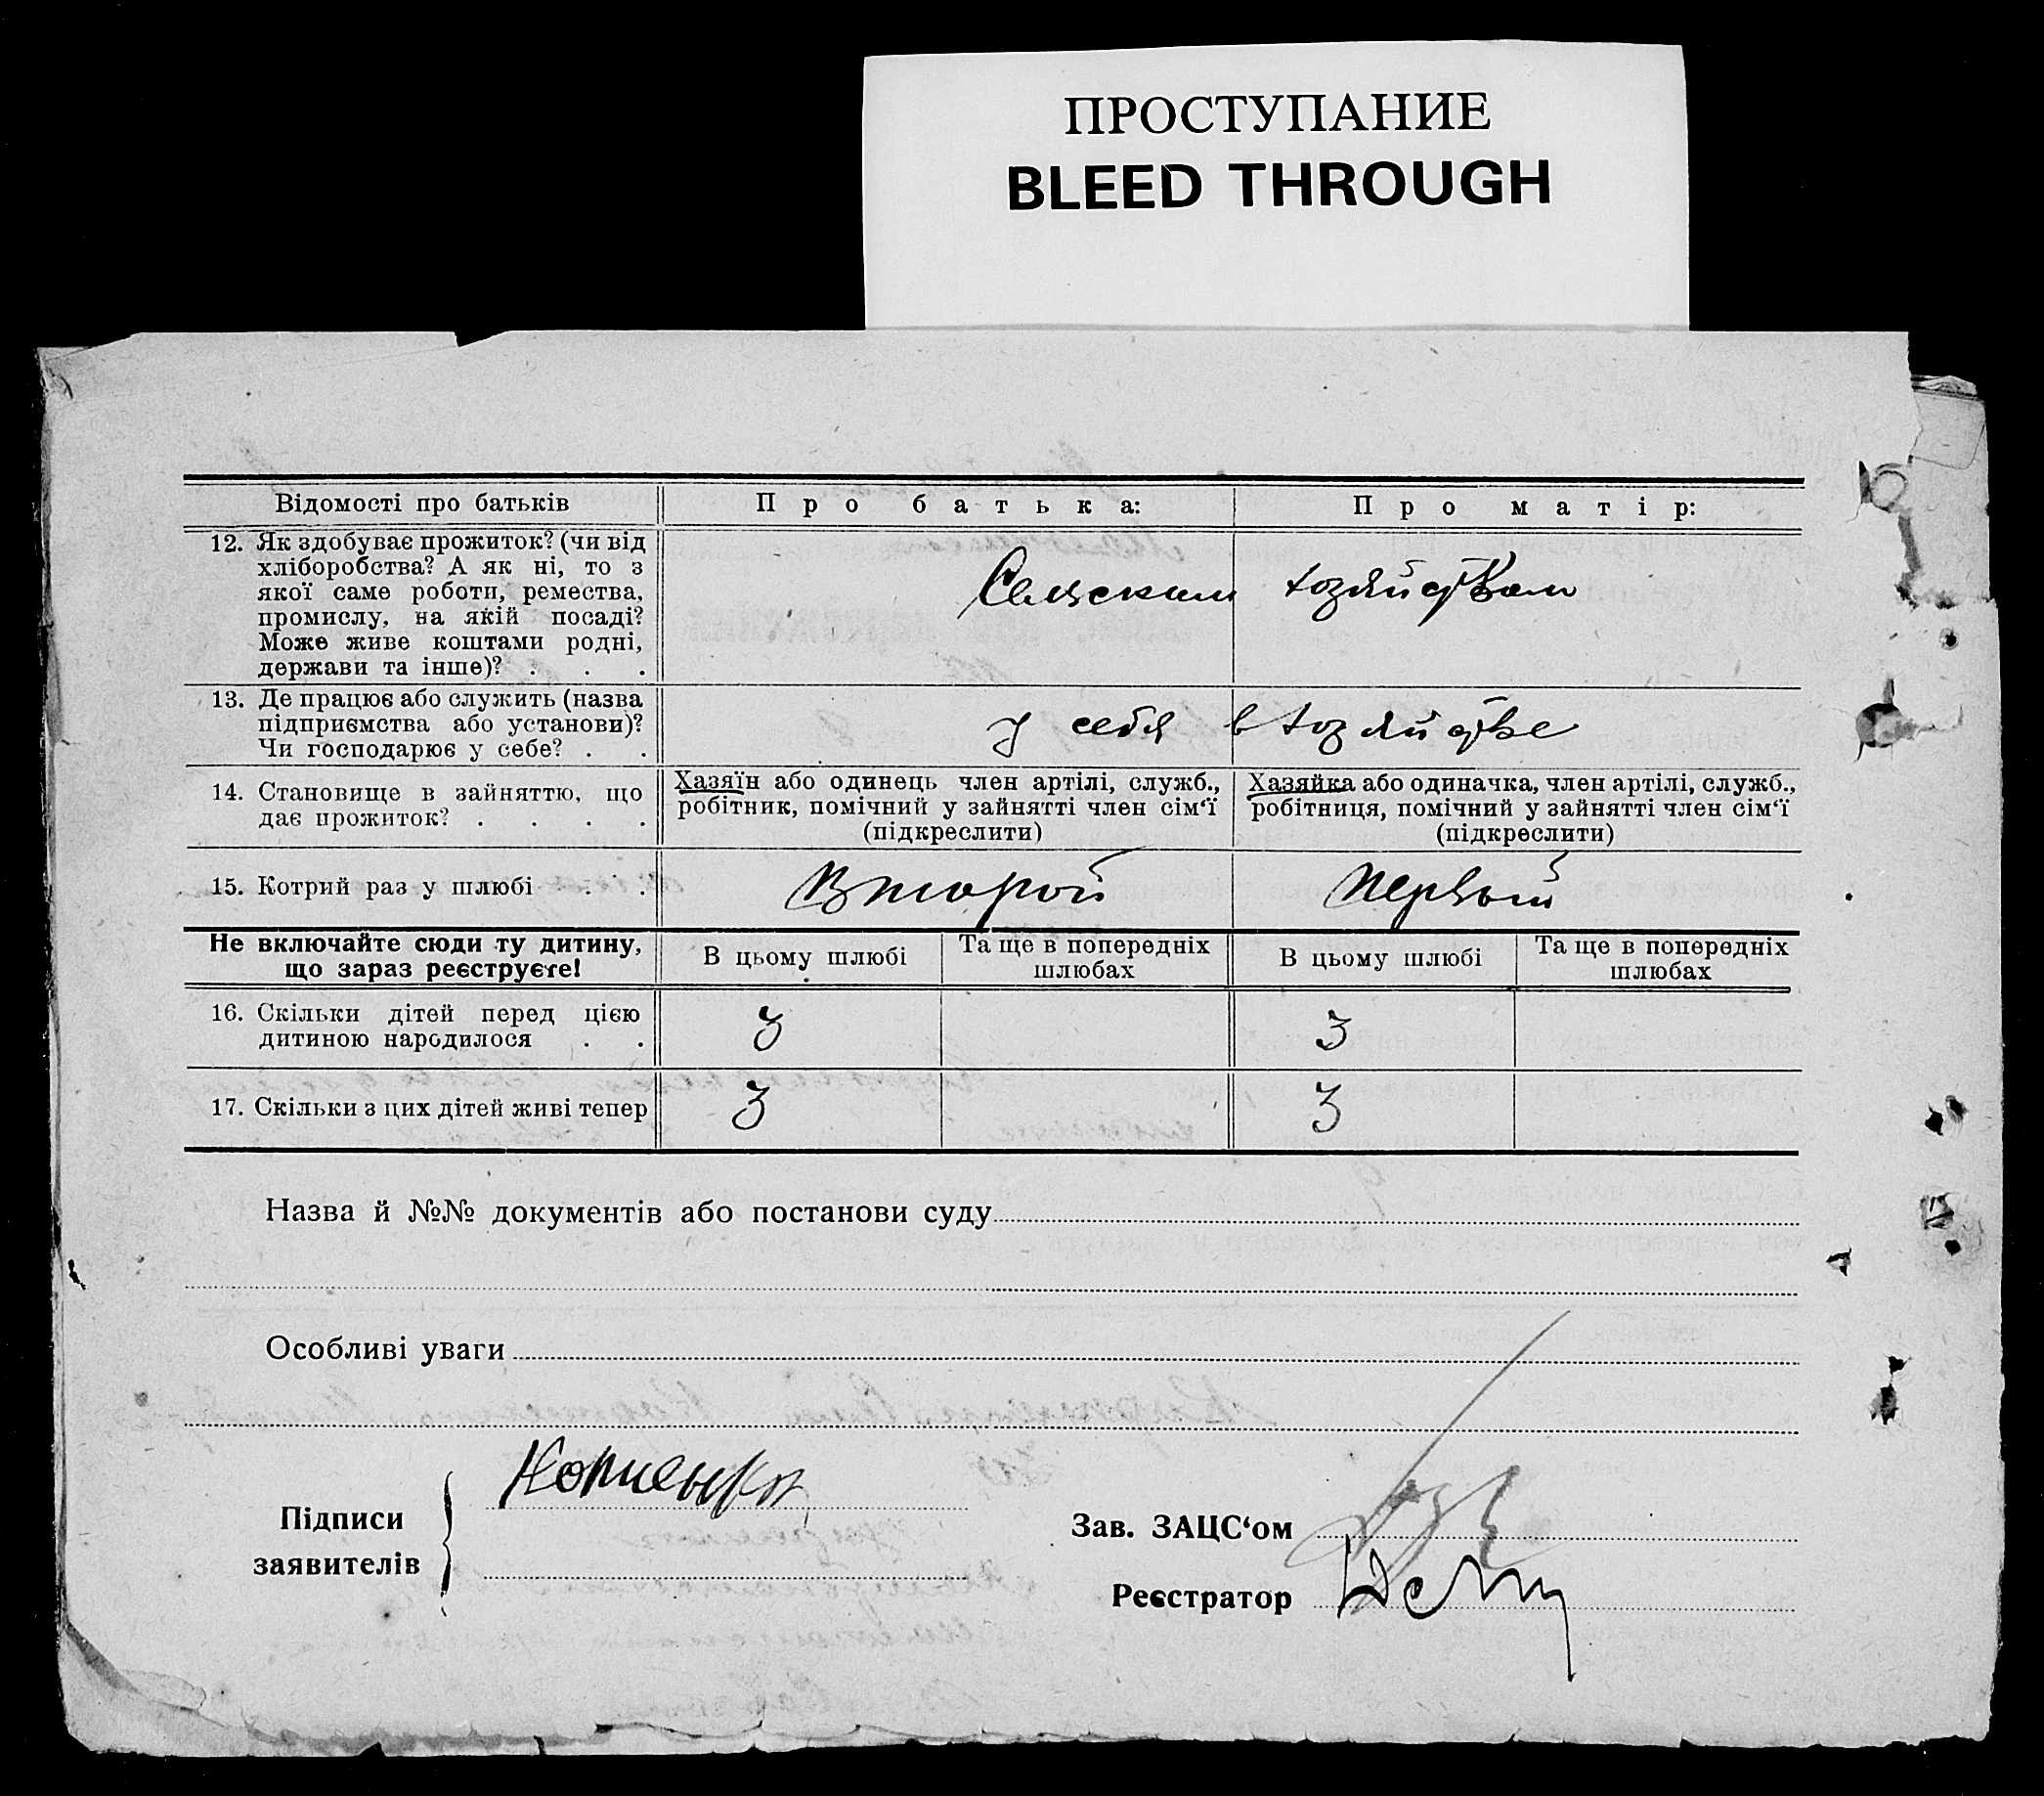 ПРОСТУПАНИЕ
BLEED THROUGH
Відомості про батьків
Про батька:
Про матір:
12. Як здобуває прожиток? (чи від
хліборобства? А як ні, то з
якої саме роботи, ремества,
промислу, на якій посаді?
Може живе коштами родні,
держави та інше)? . . .
Сельским хозяйством
13. Де працює або служить (назва
підприємства або установи)?
Чи господарює у себе? . .
у себя в хозяйстве
14. Становище в зайняттю, що
дає прожиток? . . . .
Хазяїн або одинець член артілі, служб.,
робітник, помічний у зайнятті член сім‘ї
(підкреслити)
Хазяйка або одиначка, член артілі, служб.,
робітниця, помічний у зайнятті член сім‘ї
(підкреслити)
15. Котрий раз у шлюбі . . .
Второй
Первый
Не включайте сюди ту дитину,
що зараз реєструєте!
В цьому шлюбі
Та ще в попередніх
шлюбах
В цьому шлюбі
Та ще в попередніх
шлюбах
16. Скільки дітей перед цією
дитиною народилося . .
3
3
17. Скільки з цих дітей живі тепер
3
3
Назва й №№ документів або постанови суду
Особливі уваги
Підписи
заявителів
Зав. ЗАЦС‘ом
Реєстратор